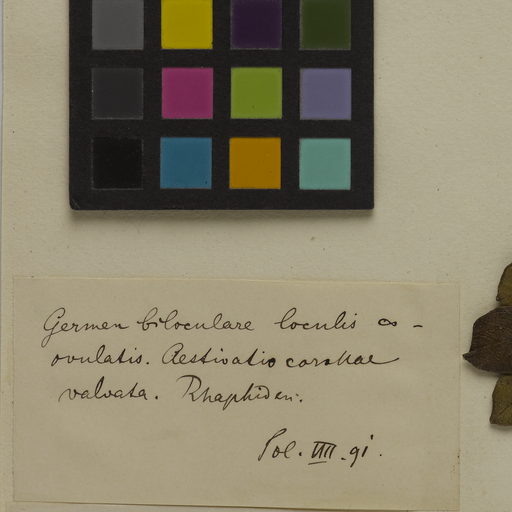 Germen biloculare loculis ∞ -
ovulatis. Aestivatio corollae
valvata. Rhaphiden.
Sol. IIII. 91.